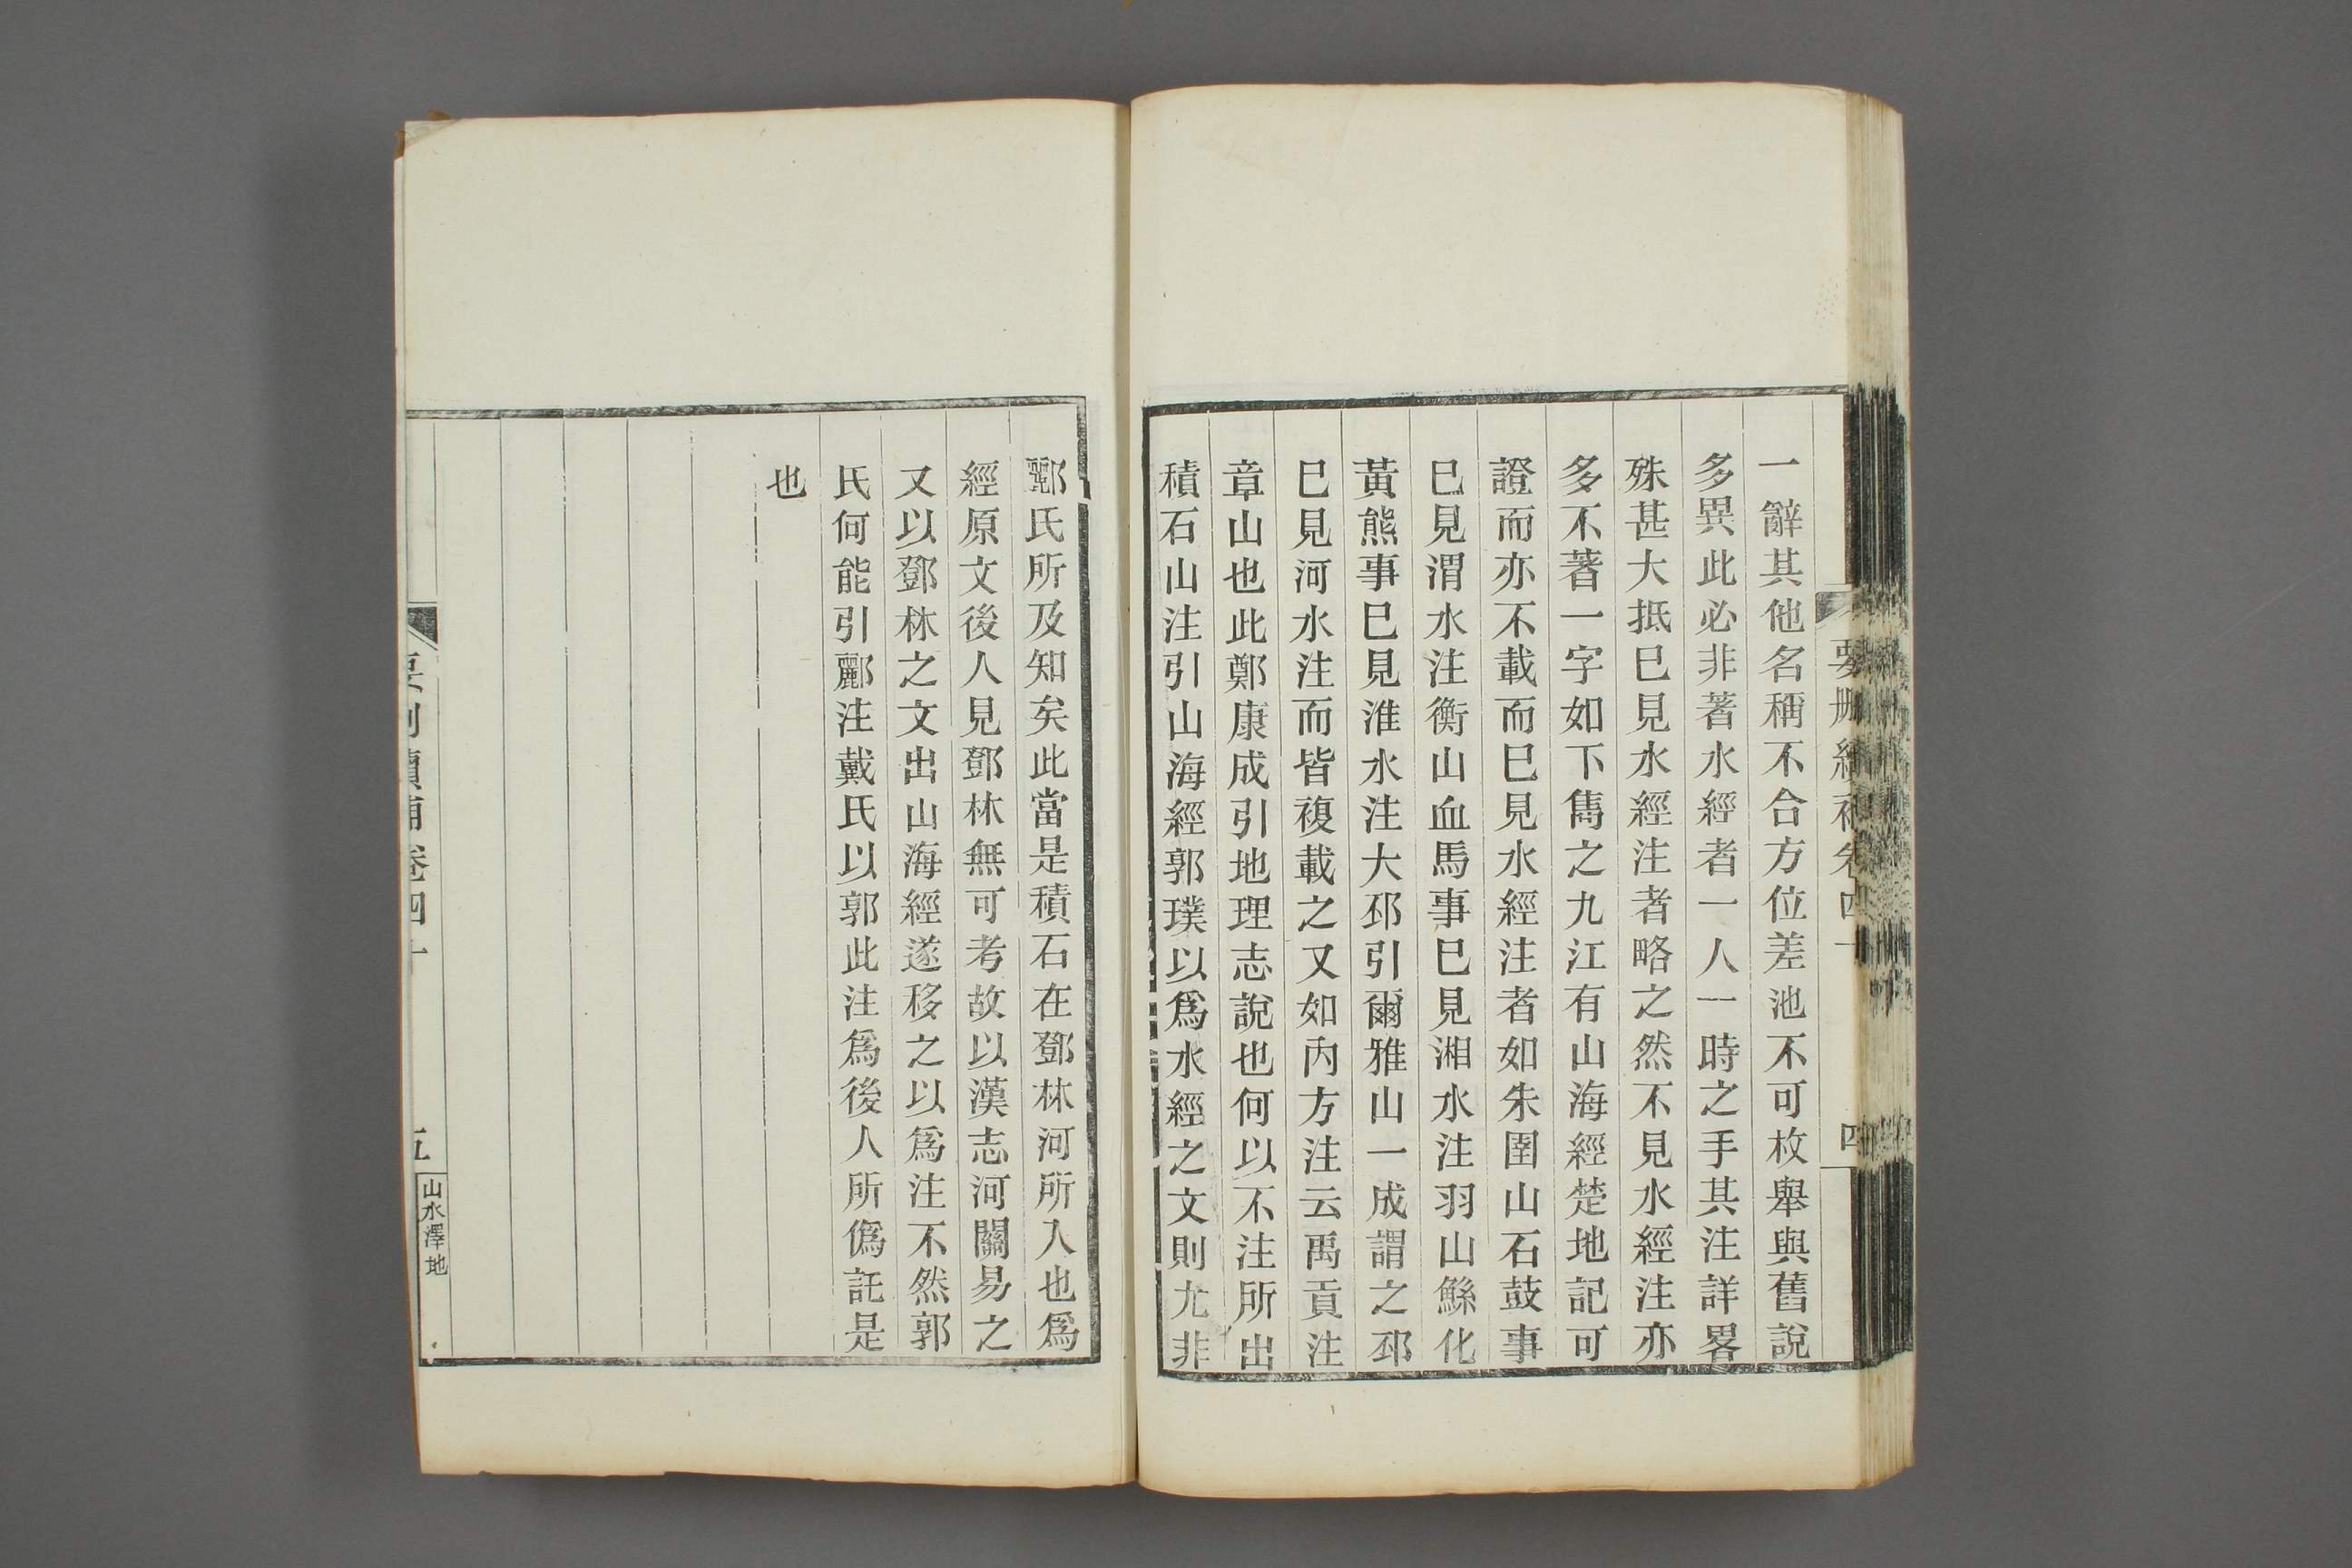 要刪續補卷四十
四
一辭其他名稱不合方位差池不可枚舉與舊說
多異此必非著水經者一人一時之手其注詳畧
殊甚大抵巳見水經注者略之然不見水經注亦
多不著一字如下雋之九江有山海經楚地記可
證而亦不載而巳見水經注者如朱圉山石鼓事
巳見渭水注衡山血馬事巳見湘水注羽山鯀化
黃熊事巳見淮水注大邳引爾雅山一成謂之邳
巳見河水注而皆複載之又如內方注云禹貢注
章山也此鄭康成引地理志說也何以不注所出
積石山注引山海經郭璞以爲水經之文則尤非
酈氏所及知矣此當是積石在鄧林河所入也爲
經原文後人見鄧林無可考故以漢志河關易之
又以鄧林之文出山海經遂移之以爲注不然郭
氏何能引酈注戴氏以郭此注爲後人所僞託是
也
要刪續補卷四十
五
山水澤地